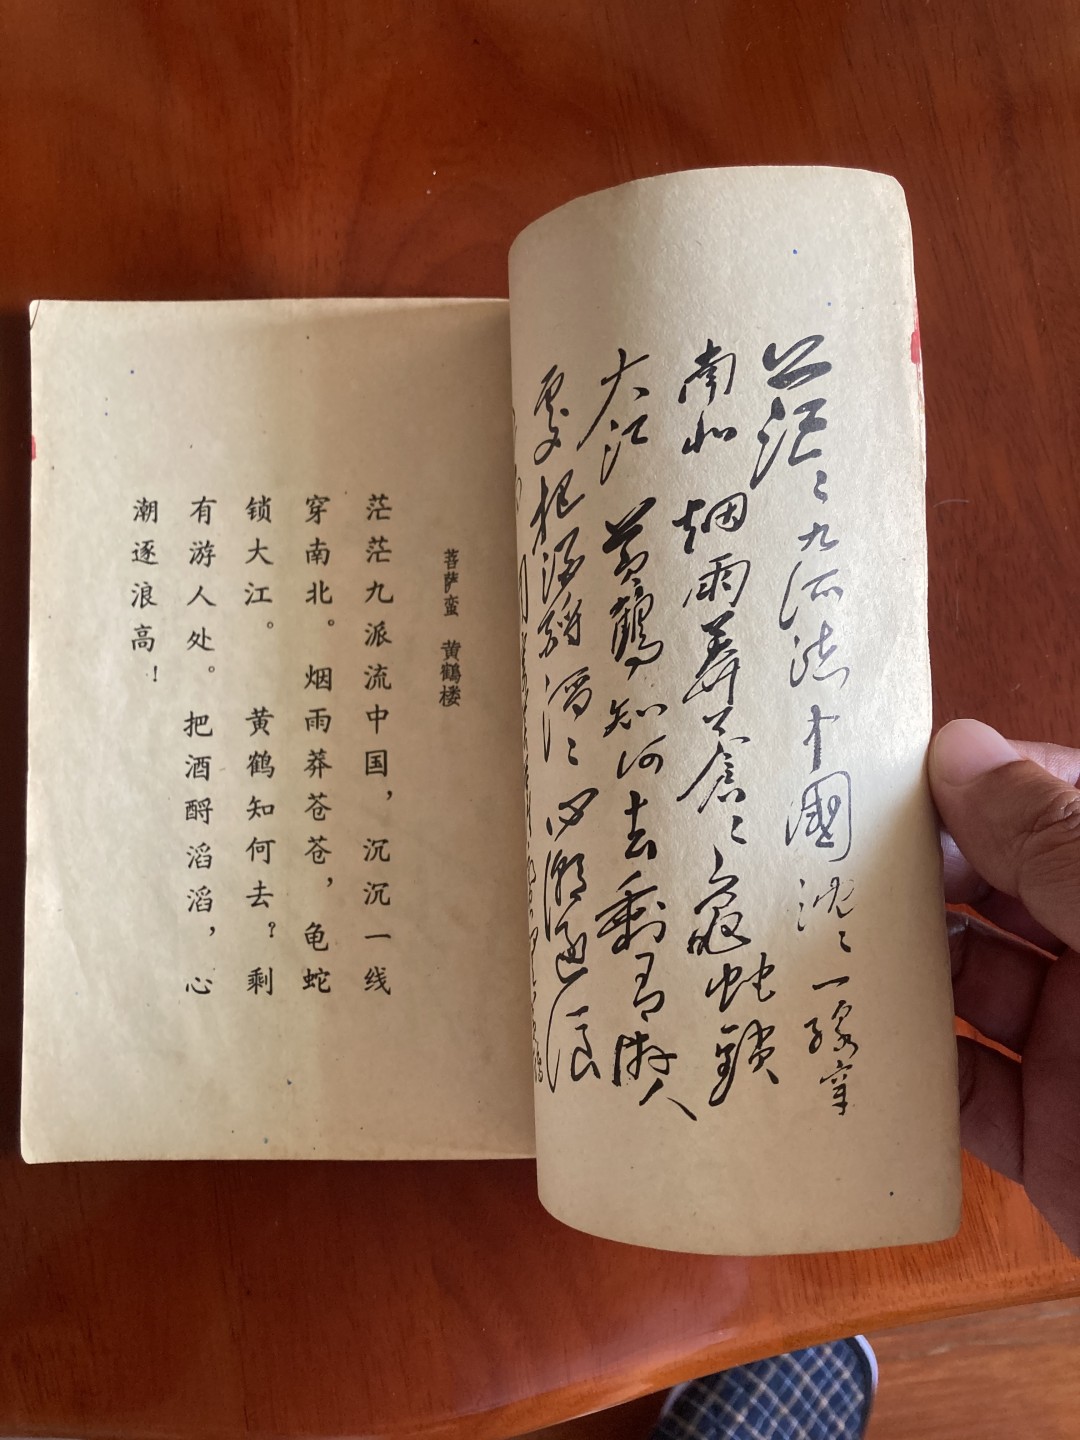 茫〻九派流中國沈〻一線穿
南北烟雨莽蒼〻龜蛇鎖
大江黄鶴知何去剩有遊人
處把酒酹滔〻心潮逐浪
菩萨蛮 黄鹤楼
茫茫九派流中国，沉沉一线
穿南北。烟雨莽苍苍，龟蛇
锁大江。 黄鹤知何去？剩
有游人处。把酒酹滔滔，心
潮逐浪高！